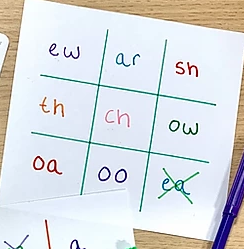 ew ar sh
th ch ow
oa oo ea